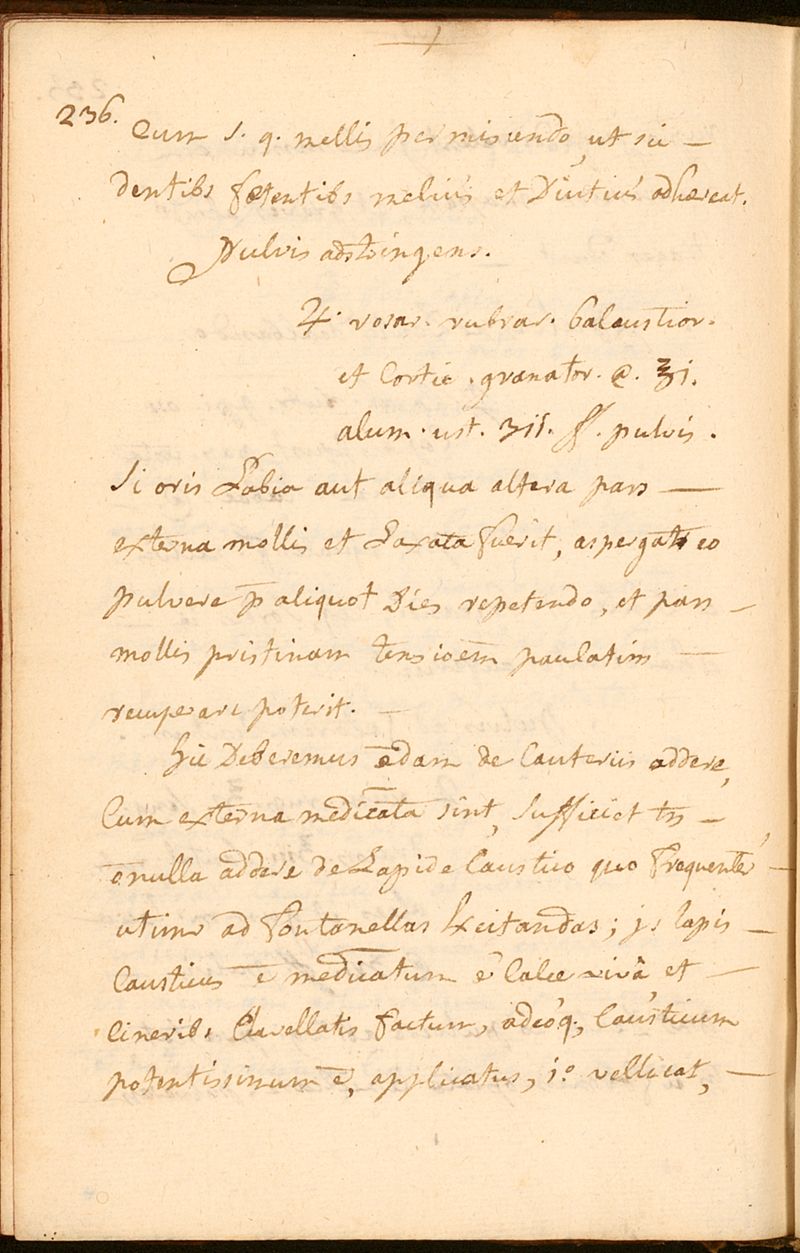 236.
Cum s. q. mellis permiscendo, ut sic —
dentibs fætentibs meliús et Diutiús adhæreat.
Pulvis adstringens.
♃. rosar. rubrar. balaustior.
et Cortic. granator. @. ʒi.
alum. ust. ʒiſ. ff. pulvis.
Si oris Labia aut aliqua altera pars —
externa mollis et Laxata fuerit, aspergatr eo
pulvere p̄ aliquot Dies repetendo, et pars —
mollis pristinam tensioēm paulatim —
recuperare poterit. —
Hic Deberemus ēdam de Cauteriis addere,
Cum externa medicāta sint, Sufficiet tn —
ōnulla addere de Lapide Caustico quo frequentèr —
utimr ad Fontanellas Excitandas; js lapis —
Causticus ē medicātum è Calce vivâ et —
Cineribs Clavellatis factum, adeóq, Caústicum
potentissimum ē, applicatus, 1.º vellicat, —